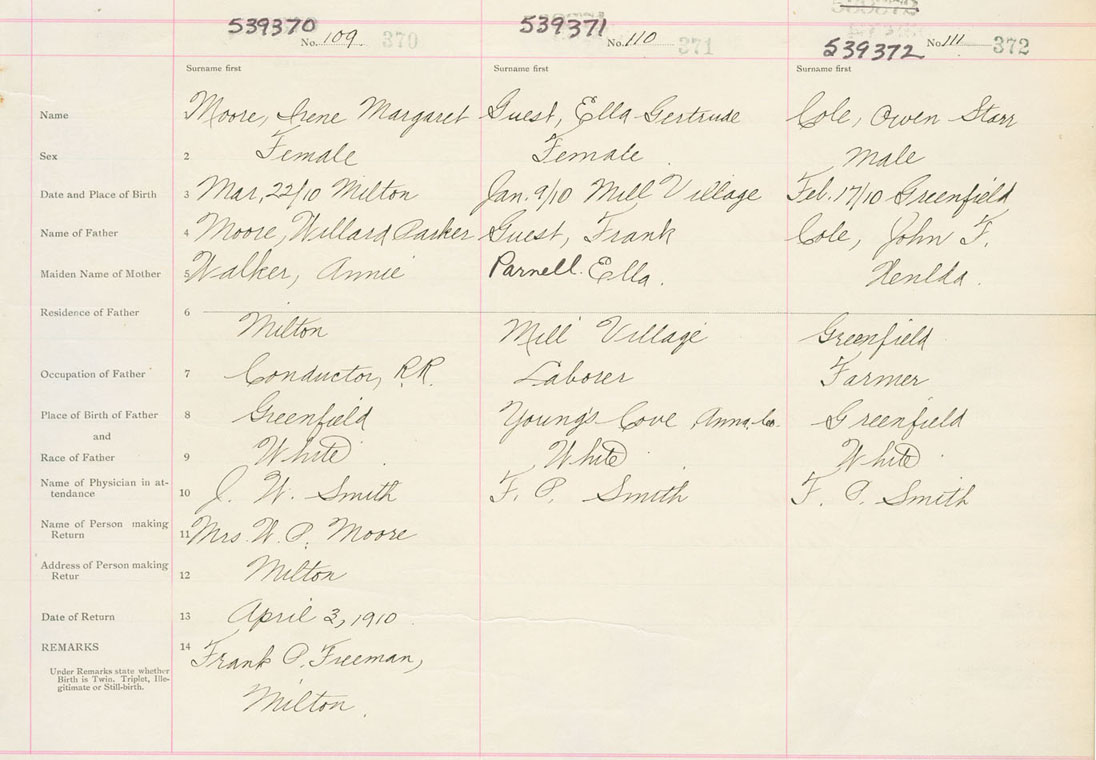 539370 No. 109 370 539371 No. 110 371 539372 No. 111 372
Surname first Surname first Surname first
Name 1 Moore, Irene Margaret Guest, Ella Gertrude Cole, Owen Starr
Sex 2 Female Female Male
Date and Place of Birth 3 Mar, 22/10 Milton Jan. 9/10 Mill Village Feb. 17/10 Greenfield
Name of Father 4 Moore, Willard Parker Guest, Frank Cole, John F.
Maiden Name of Mother 5 Walker, Annie Parnell. Ella. Henlda.
Residence of Father 6
Milton Mill Village Greenfield
Occupation of Father 7 Conductor, R.R. Laborer Farmer
Place of Birth of Father 8 Greenfield Young's Cove Anna. Co. Greenfield
and
Race of Father 9 White White White
Name of Physician in at-
tendance 10 J. W. Smith F. P. Smith F. P. Smith
Name of Person making
Return 11 Mrs. W. P. Moore
Address of Person making
Retur 12 Milton
Date of Return 13 April 3, 1910
REMARKS 14 Frank P. Freeman,
Under Remarks state whether
Birth is Twin. Triplet, Ille-
gitimate or Still-birth.
Milton.